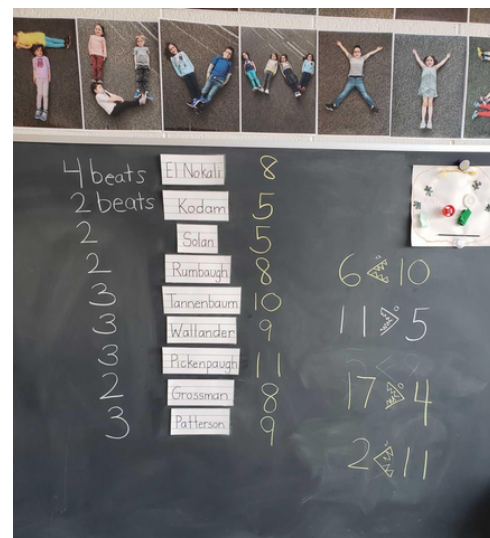 4 beats El Nokali 8
2 beats Kodam 5
2 Solan 5
2 Rumbaugh 8
3 Tannenbaum 10
3 Wallander 9
3 Pickenpaugh 11
2 Grossman 8
3 Patterson 9
6 < 10
11 > 5
17 > 4
2 < 11